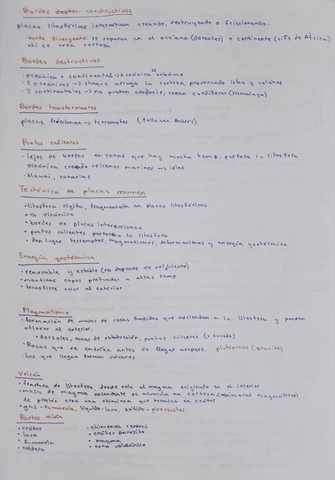 Bordes constructivos
placas litosféricas interactuan creando, destruyendo o friccionando:
· borde divergente: se separan en el océano (dorsales) o continente (rift de África)
ahí se crea corteza
Bordes destructivos
· oceánica + continental → oceánica se subduce
· 2 oceánicas → choque arruga la corteza provocando islas y volcanes
· 2 continentales → no pueden subducir, crean cordilleras (Himalaya)
Bordes transformantes
placas friccionan → terremotos (falla San Andrés)
Puntos calientes
· lejos de bordes en zonas que hay mucha temp, perfora la litosfera
oceánica creando volcanes marinos → islas
· Hawai, canarias
Tectónica de placas resumen
· litosfera rígida, fragmentada en placas litosféricas
· es dinámica
· bordes de placas interaccionan
· puntos calientes perforan la litosfera
· dan lugar terremotos, magmatismos, deformaciones y energía geotérmica
Energía geotérmica
· renovable y estable (no depende de
· mantiene capas profundas a altas temp
· transfiere calor al exterior
Magmatismo
· formación de masas de rocas fundidas que ascienden a la litosfera y pueden
al exterior.
· dorsales, zonas de subducción, puntos calientes
· Rocas que se enfrían antes de llegar superf. plutónicas (granito)
· Las que llegan forman volcanes
Volcán
· fractura de litosfera donde sale el magma originado en el interior
· masa de magma ascendente se acumula en corteza (cámaras magmáticas)
la presión crea una chimenea que termina en cráter
· gas - fumarola, líquido - lava, sólido - piroclastos.
Partes volcán
· cráter
· lava
· fumarola
· caldera
· chimenea central
· cráter parásito
· magma
· cono volcánico